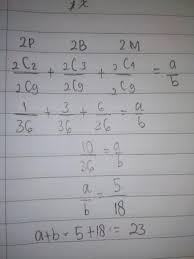 2P 2B 2M
2C2/2C9 + 2C3/2C9 + 2C4/2C9 = a/b
1/36 + 3/36 + 6/36 = a/b
10/36 = a/b
a/b = 5/18
a+b = 5+18 = 23